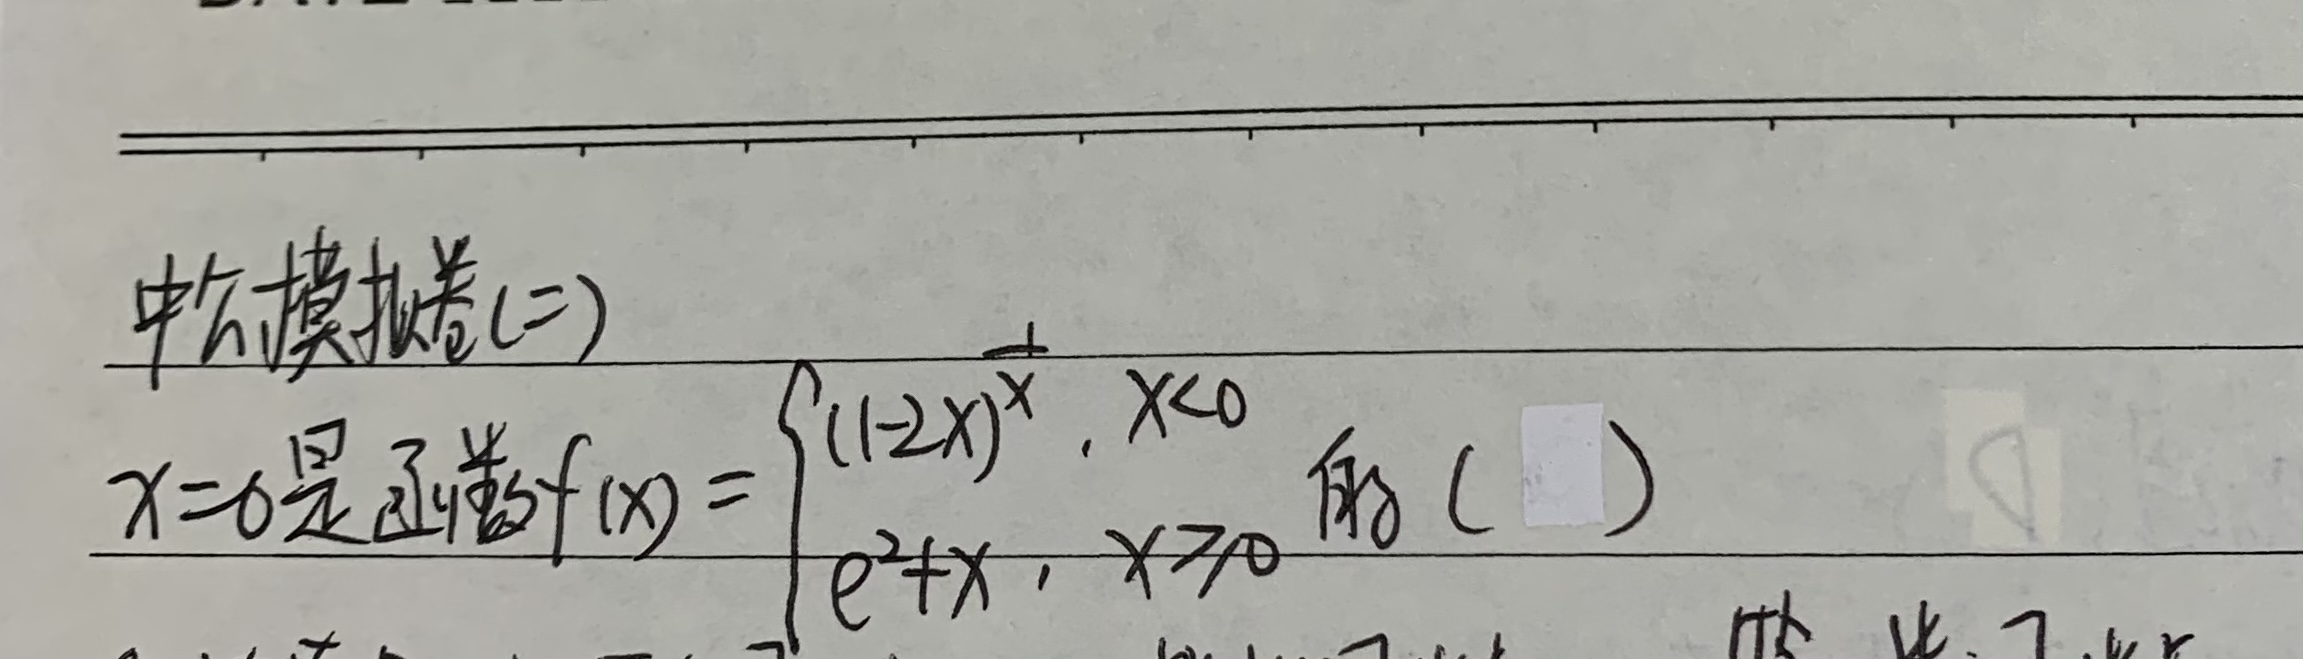 中公模拟卷(二)
x=0是函数f(x)={(1-2x)^{1/x}, x<0
e²+x, x≥0 的( )